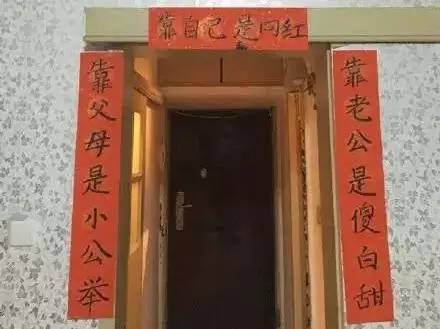 靠自己是网红
靠父母是小公举
靠老公是傻白甜